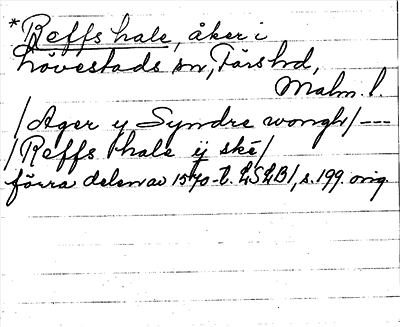 *Reffs hale, åker i
Hövestads sn, Färs hd,
Malm. l.
/Ager y Syndre wongh/ ---
/Reffs hale ij ske/
förra delen av 1570-t. LSLB1, s. 199. orig